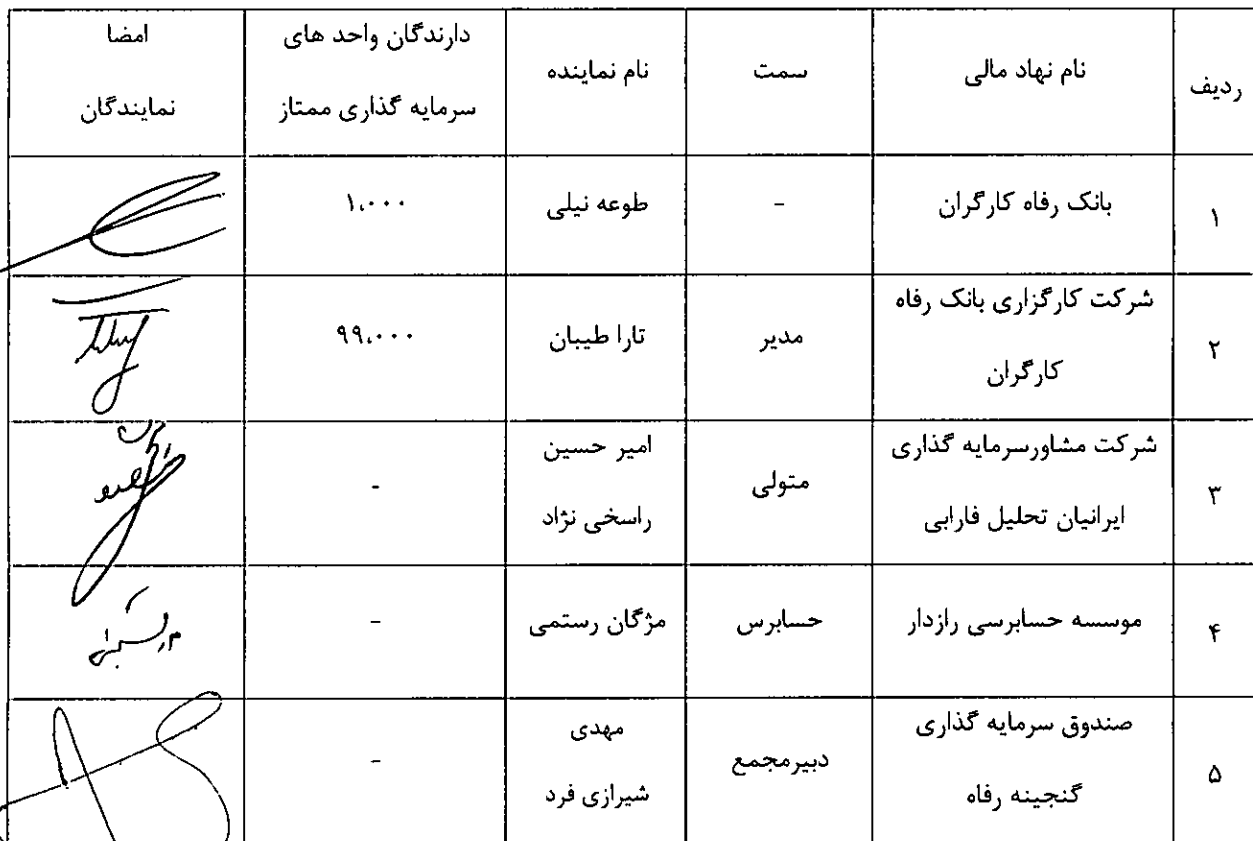 ردیف
نام نهاد مالی
سمت
نام نماینده
دارندگان واحد های
سرمایه گذاری ممتاز
امضا
نمایندگان
۱
بانک رفاه کارگران
-
طوعه نیلی
۱,۰۰۰
۲
شرکت کارگزاری بانک رفاه
کارگران
مدیر
تارا طیبان
۹۹,۰۰۰
۳
شرکت مشاورسرمایه گذاری
ایرانیان تحلیل فارابی
متولی
امیر حسین
راسخی نژاد
-
۴
موسسه حسابرسی رازدار
حسابرس
مژگان رستمی
-
۵
صندوق سرمایه گذاری
گنجینه رفاه
دبیرمجمع
مهدی
شیرازی فرد
-